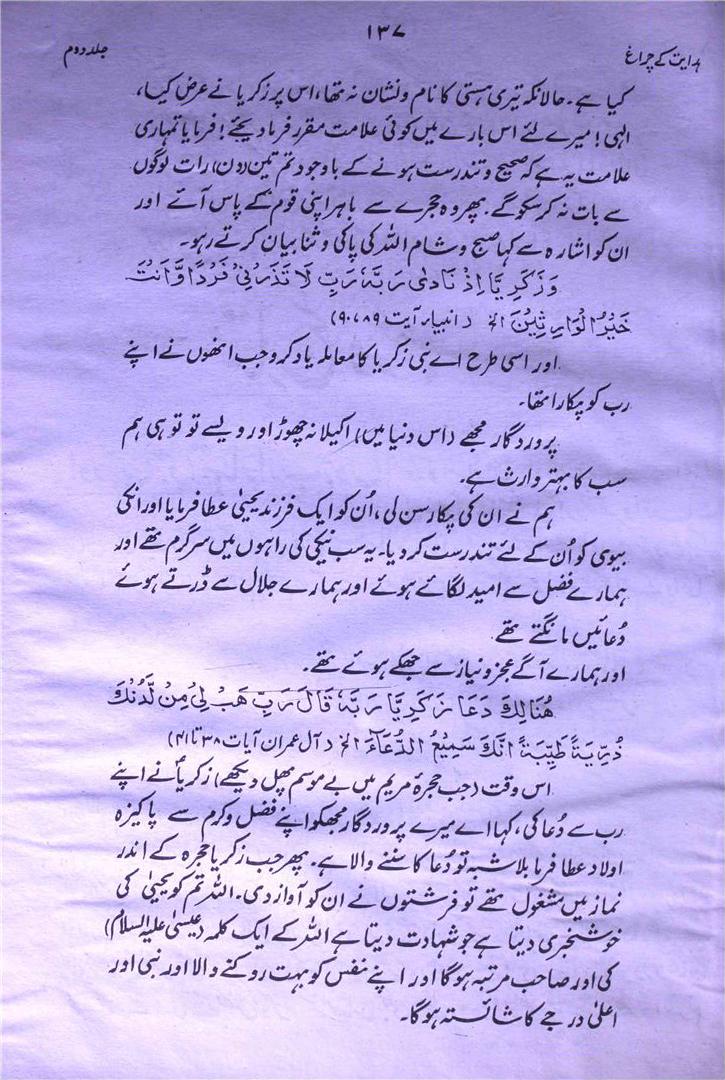 ۱۳۷
ہدایت کے چراغ
جلد دوم
کیا ہے۔ حالانکہ تیری ہستی کا نام و نشان نہ تھا، اس پر زکریا نے عرض کیا،
الٰہی! میرے لئے اس بارے میں کوئی علامت مقرر فرما دیجئے! فرمایا تمہاری
علامت یہ ہے کہ صحیح و تندرست ہونے کے باوجود تم تین (دن) رات لوگوں
سے بات نہ کر سکو گے۔ پھر وہ حجرے سے باہر اپنی قوم کے پاس آئے اور
ان کو اشارہ سے کہا صبح و شام اللہ کی پاکی و ثنا بیان کرتے رہو۔
وَزَكَرِيَّا اِذْ نَادٰى رَبَّهٗ رَبِّ لَا تَذَرْنِىْ فَرْدًا وَّاَنْتَ
خَيْرُ الْوَارِثِيْنَ الخ (انبیاء آیت ۸۹، ۹۰)
اور اسی طرح اے نبی زکریا کا معاملہ یاد کرو جب انھوں نے اپنے
رب کو پکارا تھا۔
پروردگار مجھے (اس دنیا میں) اکیلا نہ چھوڑ اور ویسے تو تو ہی ہم
سب کا بہتر وارث ہے۔
ہم نے ان کی پکار سن لی، اُن کو ایک فرزند یحییٰ عطا فرمایا اور انکی
بیوی کو اُن کے لئے تندرست کر دیا۔ یہ سب نیکی کی راہوں میں سرگرم تھے اور
ہمارے فضل سے امید لگائے ہوئے اور ہمارے جلال سے ڈرتے ہوئے
دُعائیں مانگتے تھے۔
اور ہمارے آگے عجز و نیاز سے جھکے ہوئے تھے۔
هُنَالِكَ دَعَا زَكَرِيَّا رَبَّهٗ قَالَ رَبِّ هَبْ لِىْ مِنْ لَّدُنْكَ
ذُرِّيَةً طَيِّبَةً اِنَّكَ سَمِيْعُ الدُّعَآءِ الخ (آل عمران آیات ۳۸ تا ۴۱)
اس وقت (جب حجرۂ مریم میں بے موسم پھل دیکھے) زکریاؑ نے اپنے
رب سے دُعا کی، کہا اے میرے پروردگار مجھکو اپنے فضل و کرم سے پاکیزہ
اولاد عطا فرما بلاشبہ تو دُعا کا سننے والا ہے۔ پھر جب زکریا حجرہ کے اندر
نماز میں مشغول تھے تو فرشتوں نے ان کو آواز دی۔ اللہ تم کو یحییٰ کی
خوشخبری دیتا ہے جو شہادت دیتا ہے اللہ کے ایک کلمہ (عیسیٰ علیہ السلام)
کی اور صاحب مرتبہ ہوگا اور اپنے نفس کو بہت روکنے والا اور نبی اور
اعلیٰ درجے کا شائستہ ہوگا۔